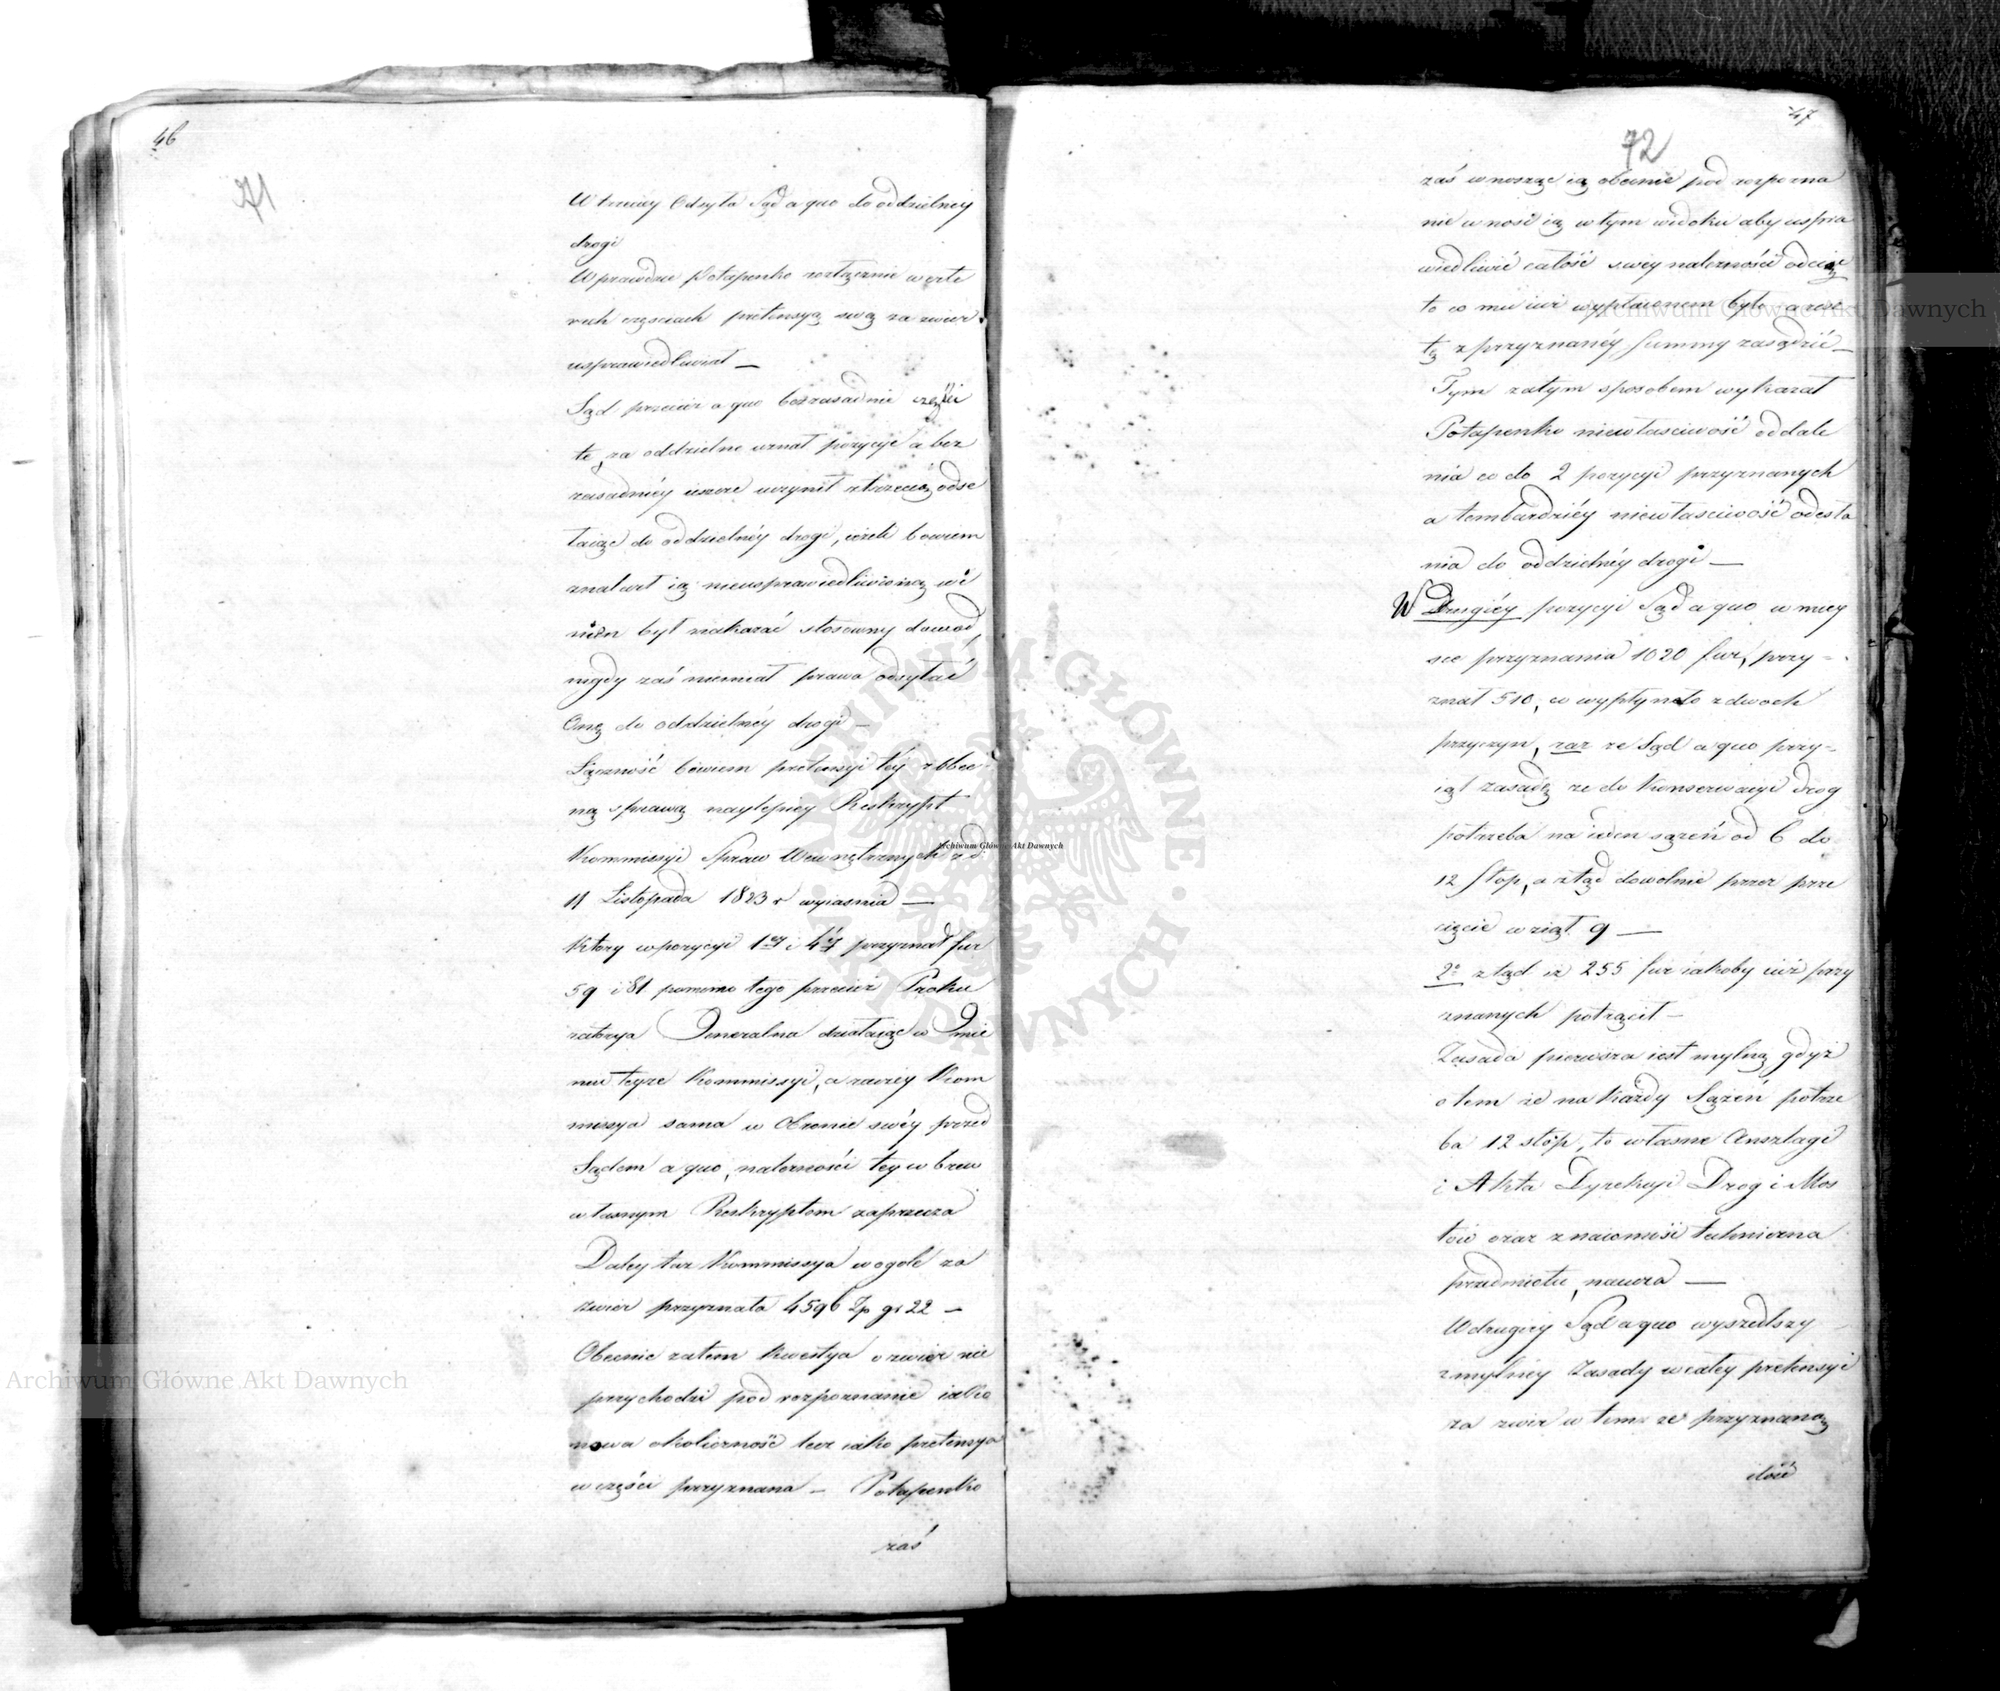 46
71
W trzeciey Odsyła Sąd a quo do oddzielney
drogi
Wprawdzie Potapenko rozłącznie w czte
rech częściach pretensyą swą za zwier
usprawiedliwiał —
Sąd przecież a quo bezzasadnie części
te, za oddzielne uznał pozycye a bez
zasadniéy ieszcze uczynił z trzecią odse
łaiąc do oddzielnéy drogi, ieżeli bowiem
znalazł ią nieusprawiedliwioną wi
nien był nakazać stosowny dowód
nigdy zaś niemiał prawa odsyłać
Onę do oddzielnéy drogi —
Łączność bowiem pretensyi téy z Obec
ną sprawą naylepiey Reskrypt
Kommissyi Spraw Wewnętrznych z d.
11 Listopada 1823 r wyiasnia —
Ktory w pozycyi 1éy i 4éy przyznał fur
59 i 81 pomimo tego przecież Proku
ratorya Jeneralna działaiąc w Imie
niu teyże Kommissyi, a raczéy Kom
missya sama w Obronie swéy przed
Sądem a quo, należności tey w brew
własnym Reskryptom zaprzecza
Daley taż Kommissya wogole za
zwier przyznała 4596 Zp gr 22 —
Obecnie zatem kwestya o zwier nie
przychodzi pod rozpoznanie iako
nowa okoliczność lecz iako pretensya
w części przyznana — Potapenko
zaś
47
72
zaś wnosząc ią obecnie pod rozpozna
nie wnosi ią w tym widoku aby uspra
wiedliwić całość swéy należności odciąć
to co mu iuż wypłaconem było a resz
tę z przyznanéy Summy zasądzić —
Tym zatym sposobem wykazał
Potapenko niewłasciwość oddale
nia co do 2 pozycyi przyznanych
a tembardziéy niewłasciwość odesła
nia do oddzielnéy drogi —
W Drugiéy pozycyi Sąd a quo w miey
sce przyznania 1020 fur, przy-
znał 510, co wypłyneło z dwoch
przyczyn, raz ze Sąd a quo przy-
iął zasadę ze do Konserwacyi Drog
potrzeba na ieden sążeń od 6 do
12 Stop, a ztąd dowolnie przez prze
cięcie wziął 9 —
2o ztąd iż 255 fur iakoby iuż przy
znanych potrącił —
Zasada pierwsza iest mylną gdyż
o tem że na każdy Sążeń potrze
ba 12 stóp, to własne Anszlagi
i Akta Dyrekcyi Drog i Mos
tów oraz znaiomość techniczna
przedmiotu, naucza —
W drugiey Sąd a quo wyszedłszy
z mylney Zasady w całey pretensyi
za zwir w tem ze przyznaną
ilość